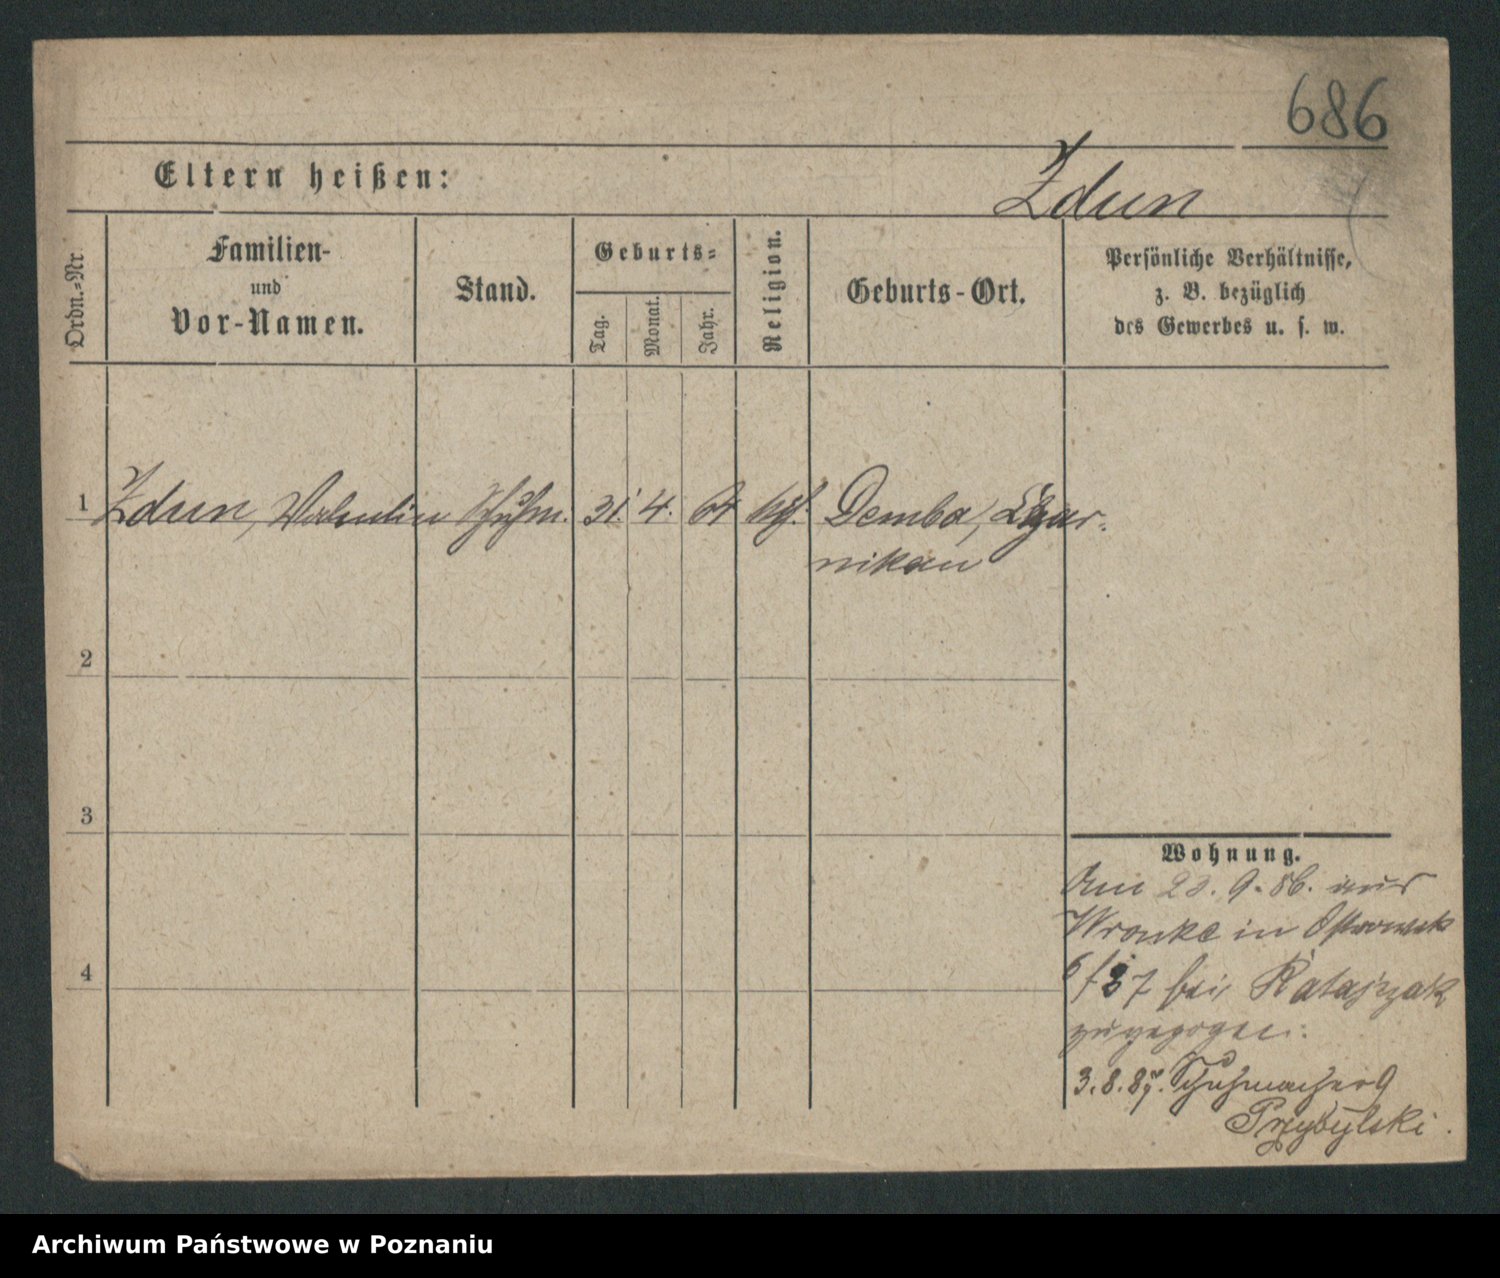 686
Eltern heißen:
Zdun
Ordn.-Nr.
Familien-
und
Vor-Namen.
Stand.
Geburts-
Tag.
Monat.
Jahr.
Religion.
Geburts-Ort.
Persönliche Verhältnisse,
z. B. bezüglich
des Gewerbes u. s. w.
1 Zdun, Valentin Schuhm. 31. 4. 64 kath. Demba, Czar-
nikau
2
3
4
Wohnung.
Am 23. 9. 86. aus
Wronke in Ostrowek
6/7 bei Katajczak
zugezogen.
3. 8. 87. Schuhmacherg
Przybylski.
Archiwum Państwowe w Poznaniu